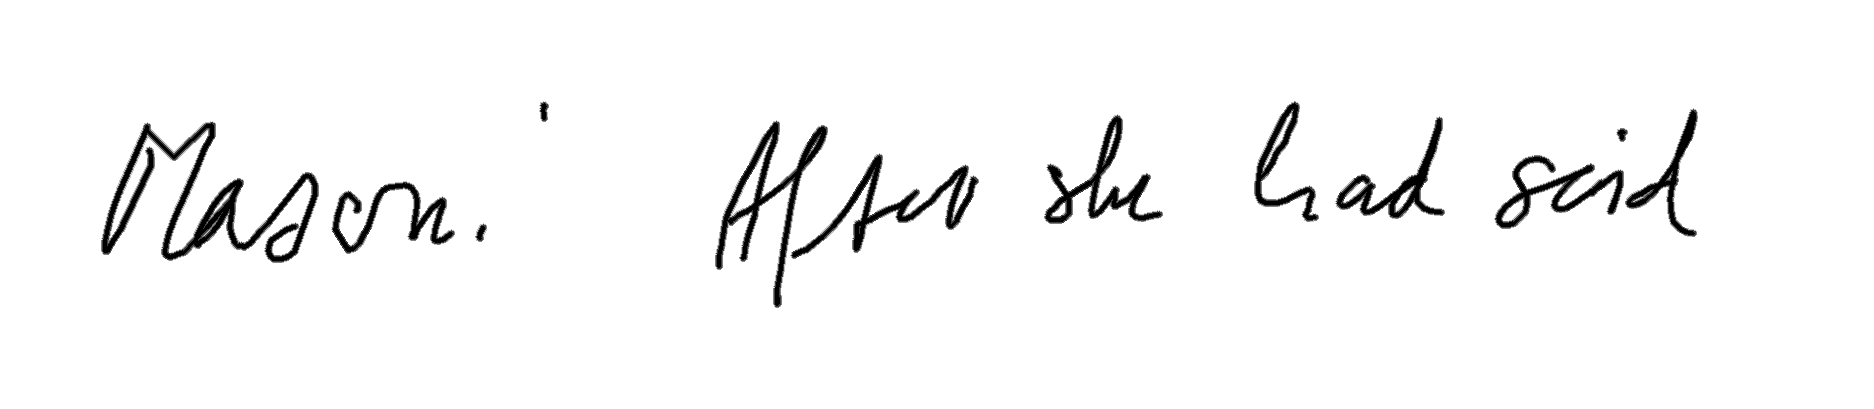 Mason.' After she had said